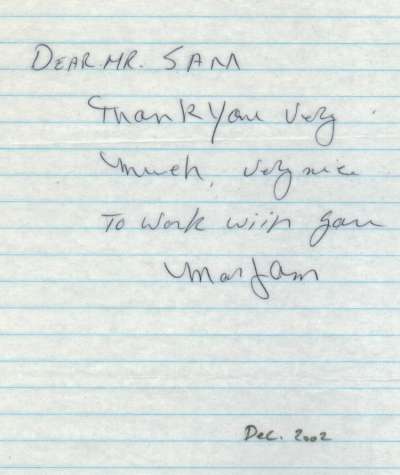 DEAR MR. SAM
Thank you very
much, very nice
To work with you
Marjam
Dec. 2002